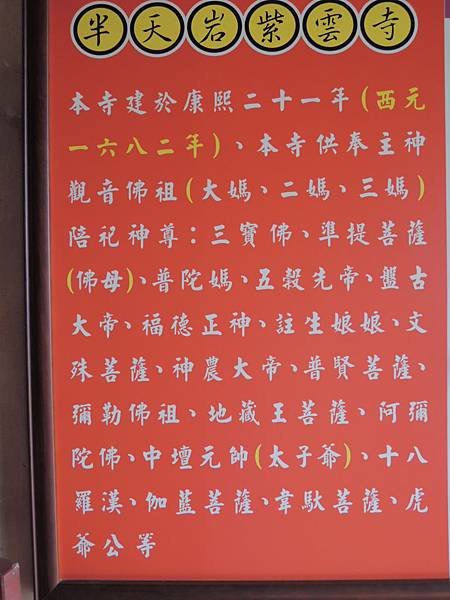 半天岩紫雲寺
本寺建於康熙二十一年(西元
一六八二年)、本寺供奉主神
觀音佛祖(大媽、二媽、三媽)
陪祀神尊：三寶佛、準提菩薩
(佛母)、普陀媽、五穀先帝、盤古
大帝、福德正神、註生娘娘、文
殊菩薩、神農大帝、普賢菩薩、
彌勒佛祖、地藏王菩薩、阿彌
陀佛、中壇元帥(太子爺)、十八
羅漢、伽藍菩薩、韋馱菩薩、虎
爺公等